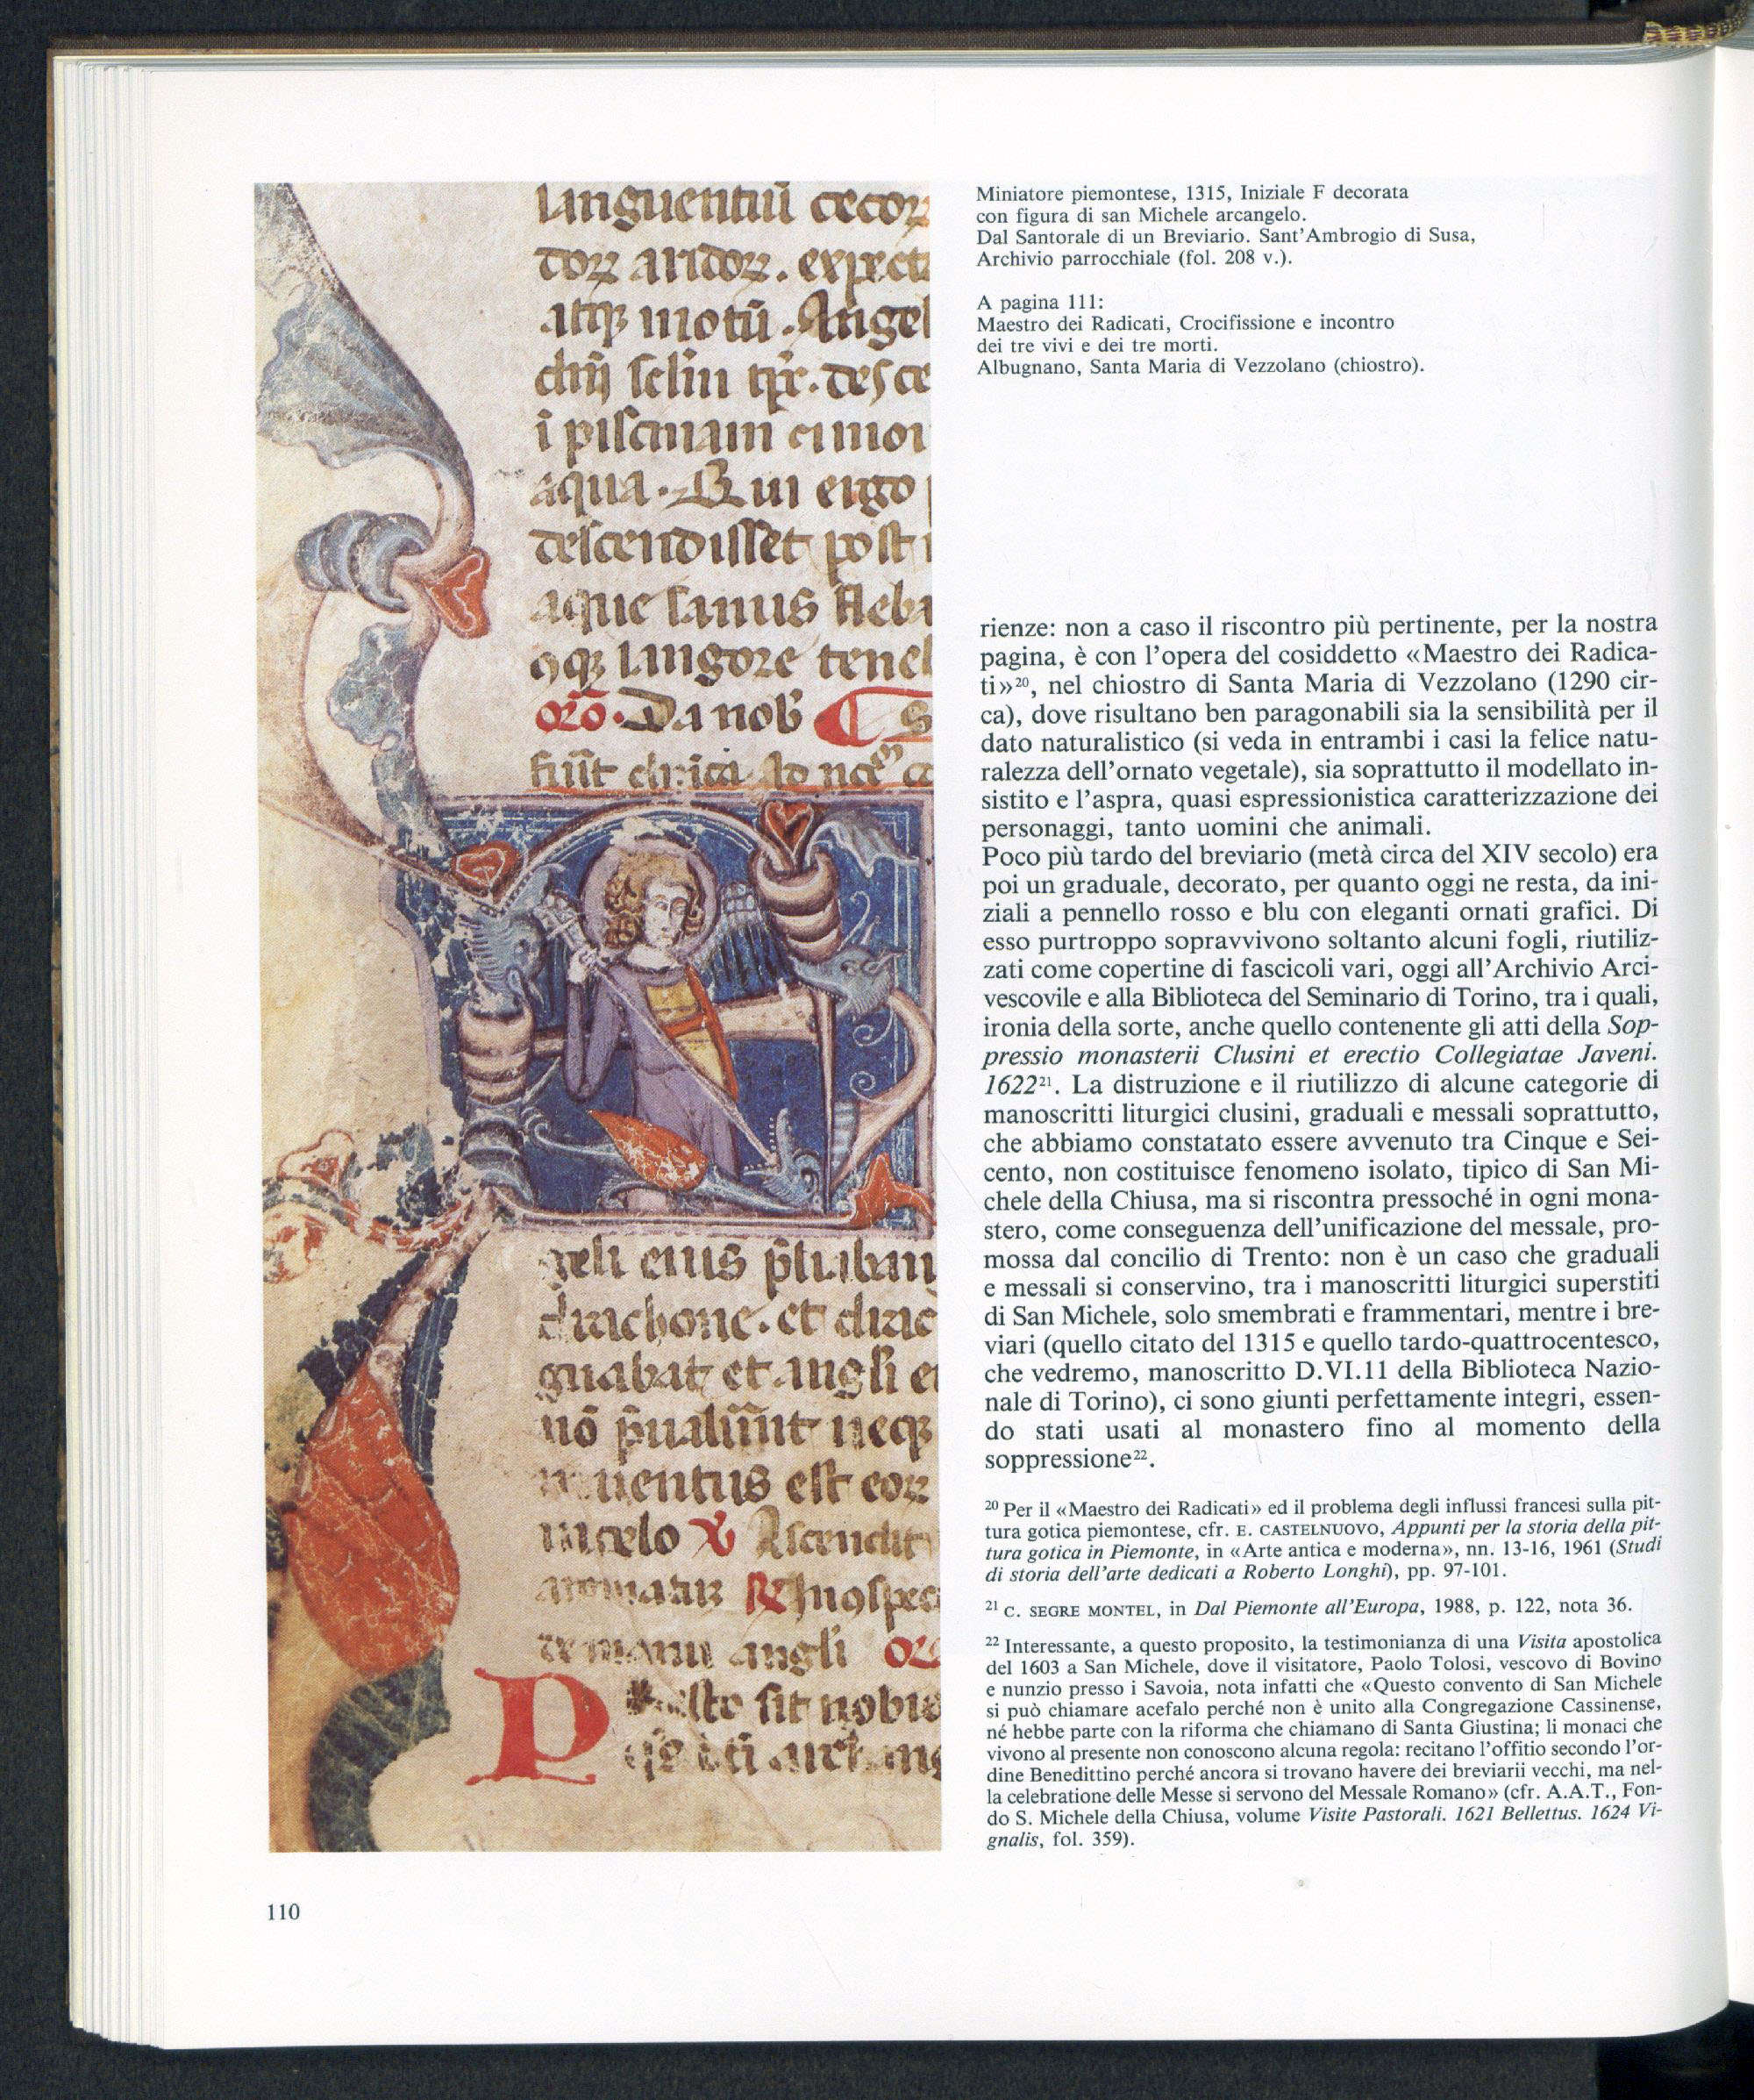 languentiū cecorꝝ
dorꝝ aridorꝝ. expect
atqꝫ motū. Angel
aqua. Qui ergo
descendisset post
aque sanus fieba
langore tene
oro. Da nob
geli eius
drachone. et drac
gnabat et angli e
nō neqꝫ
inuentus est eorꝝ
in celo Ascendit
aromatū
de manu angli
sit nobis
Miniatore piemontese, 1315, Iniziale F decorata
con figura di san Michele arcangelo.
Dal Santorale di un Breviario. Sant'Ambrogio di Susa,
Archivio parrocchiale (fol. 208 v.).
A pagina 111:
Maestro dei Radicati, Crocifissione e incontro
dei tre vivi e dei tre morti.
Albugnano, Santa Maria di Vezzolano (chiostro).
rienze: non a caso il riscontro più pertinente, per la nostra
pagina, è con l'opera del cosiddetto «Maestro dei Radica-
ti»²⁰, nel chiostro di Santa Maria di Vezzolano (1290 cir-
ca), dove risultano ben paragonabili sia la sensibilità per il
dato naturalistico (si veda in entrambi i casi la felice natu-
ralezza dell'ornato vegetale), sia soprattutto il modellato in-
sistito e l'aspra, quasi espressionistica caratterizzazione dei
personaggi, tanto uomini che animali.
Poco più tardo del breviario (metà circa del XIV secolo) era
poi un graduale, decorato, per quanto oggi ne resta, da ini-
ziali a pennello rosso e blu con eleganti ornati grafici. Di
esso purtroppo sopravvivono soltanto alcuni fogli, riutiliz-
zati come copertine di fascicoli vari, oggi all'Archivio Arci-
vescovile e alla Biblioteca del Seminario di Torino, tra i quali,
ironia della sorte, anche quello contenente gli atti della Sop-
pressio monasterii Clusini et erectio Collegiatae Javeni.
1622²¹. La distruzione e il riutilizzo di alcune categorie di
manoscritti liturgici clusini, graduali e messali soprattutto,
che abbiamo constatato essere avvenuto tra Cinque e Sei-
cento, non costituisce fenomeno isolato, tipico di San Mi-
chele della Chiusa, ma si riscontra pressoché in ogni mona-
stero, come conseguenza dell'unificazione del messale, pro-
mossa dal concilio di Trento: non è un caso che graduali
e messali si conservino, tra i manoscritti liturgici superstiti
di San Michele, solo smembrati e frammentari, mentre i bre-
viari (quello citato del 1315 e quello tardo-quattrocentesco,
che vedremo, manoscritto D.VI.11 della Biblioteca Nazio-
nale di Torino), ci sono giunti perfettamente integri, essen-
do stati usati al monastero fino al momento della
soppressione²².
²⁰ Per il «Maestro dei Radicati» ed il problema degli influssi francesi sulla pit-
tura gotica piemontese, cfr. E. CASTELNUOVO, Appunti per la storia della pit-
tura gotica in Piemonte, in «Arte antica e moderna», nn. 13-16, 1961 (Studi
di storia dell'arte dedicati a Roberto Longhi), pp. 97-101.
²¹ C. SEGRE MONTEL, in Dal Piemonte all'Europa, 1988, p. 122, nota 36.
²² Interessante, a questo proposito, la testimonianza di una Visita apostolica
del 1603 a San Michele, dove il visitatore, Paolo Tolosi, vescovo di Bovino
e nunzio presso i Savoia, nota infatti che «Questo convento di San Michele
si può chiamare acefalo perché non è unito alla Congregazione Cassinense,
né hebbe parte con la riforma che chiamano di Santa Giustina; li monaci che
vivono al presente non conoscono alcuna regola: recitano l'offitio secondo l'or-
dine Benedittino perché ancora si trovano havere dei breviarii vecchi, ma nel-
la celebratione delle Messe si servono del Messale Romano» (cfr. A.A.T., Fon-
do S. Michele della Chiusa, volume Visite Pastorali. 1621 Bellettus. 1624 Vi-
gnalis, fol. 359).
110